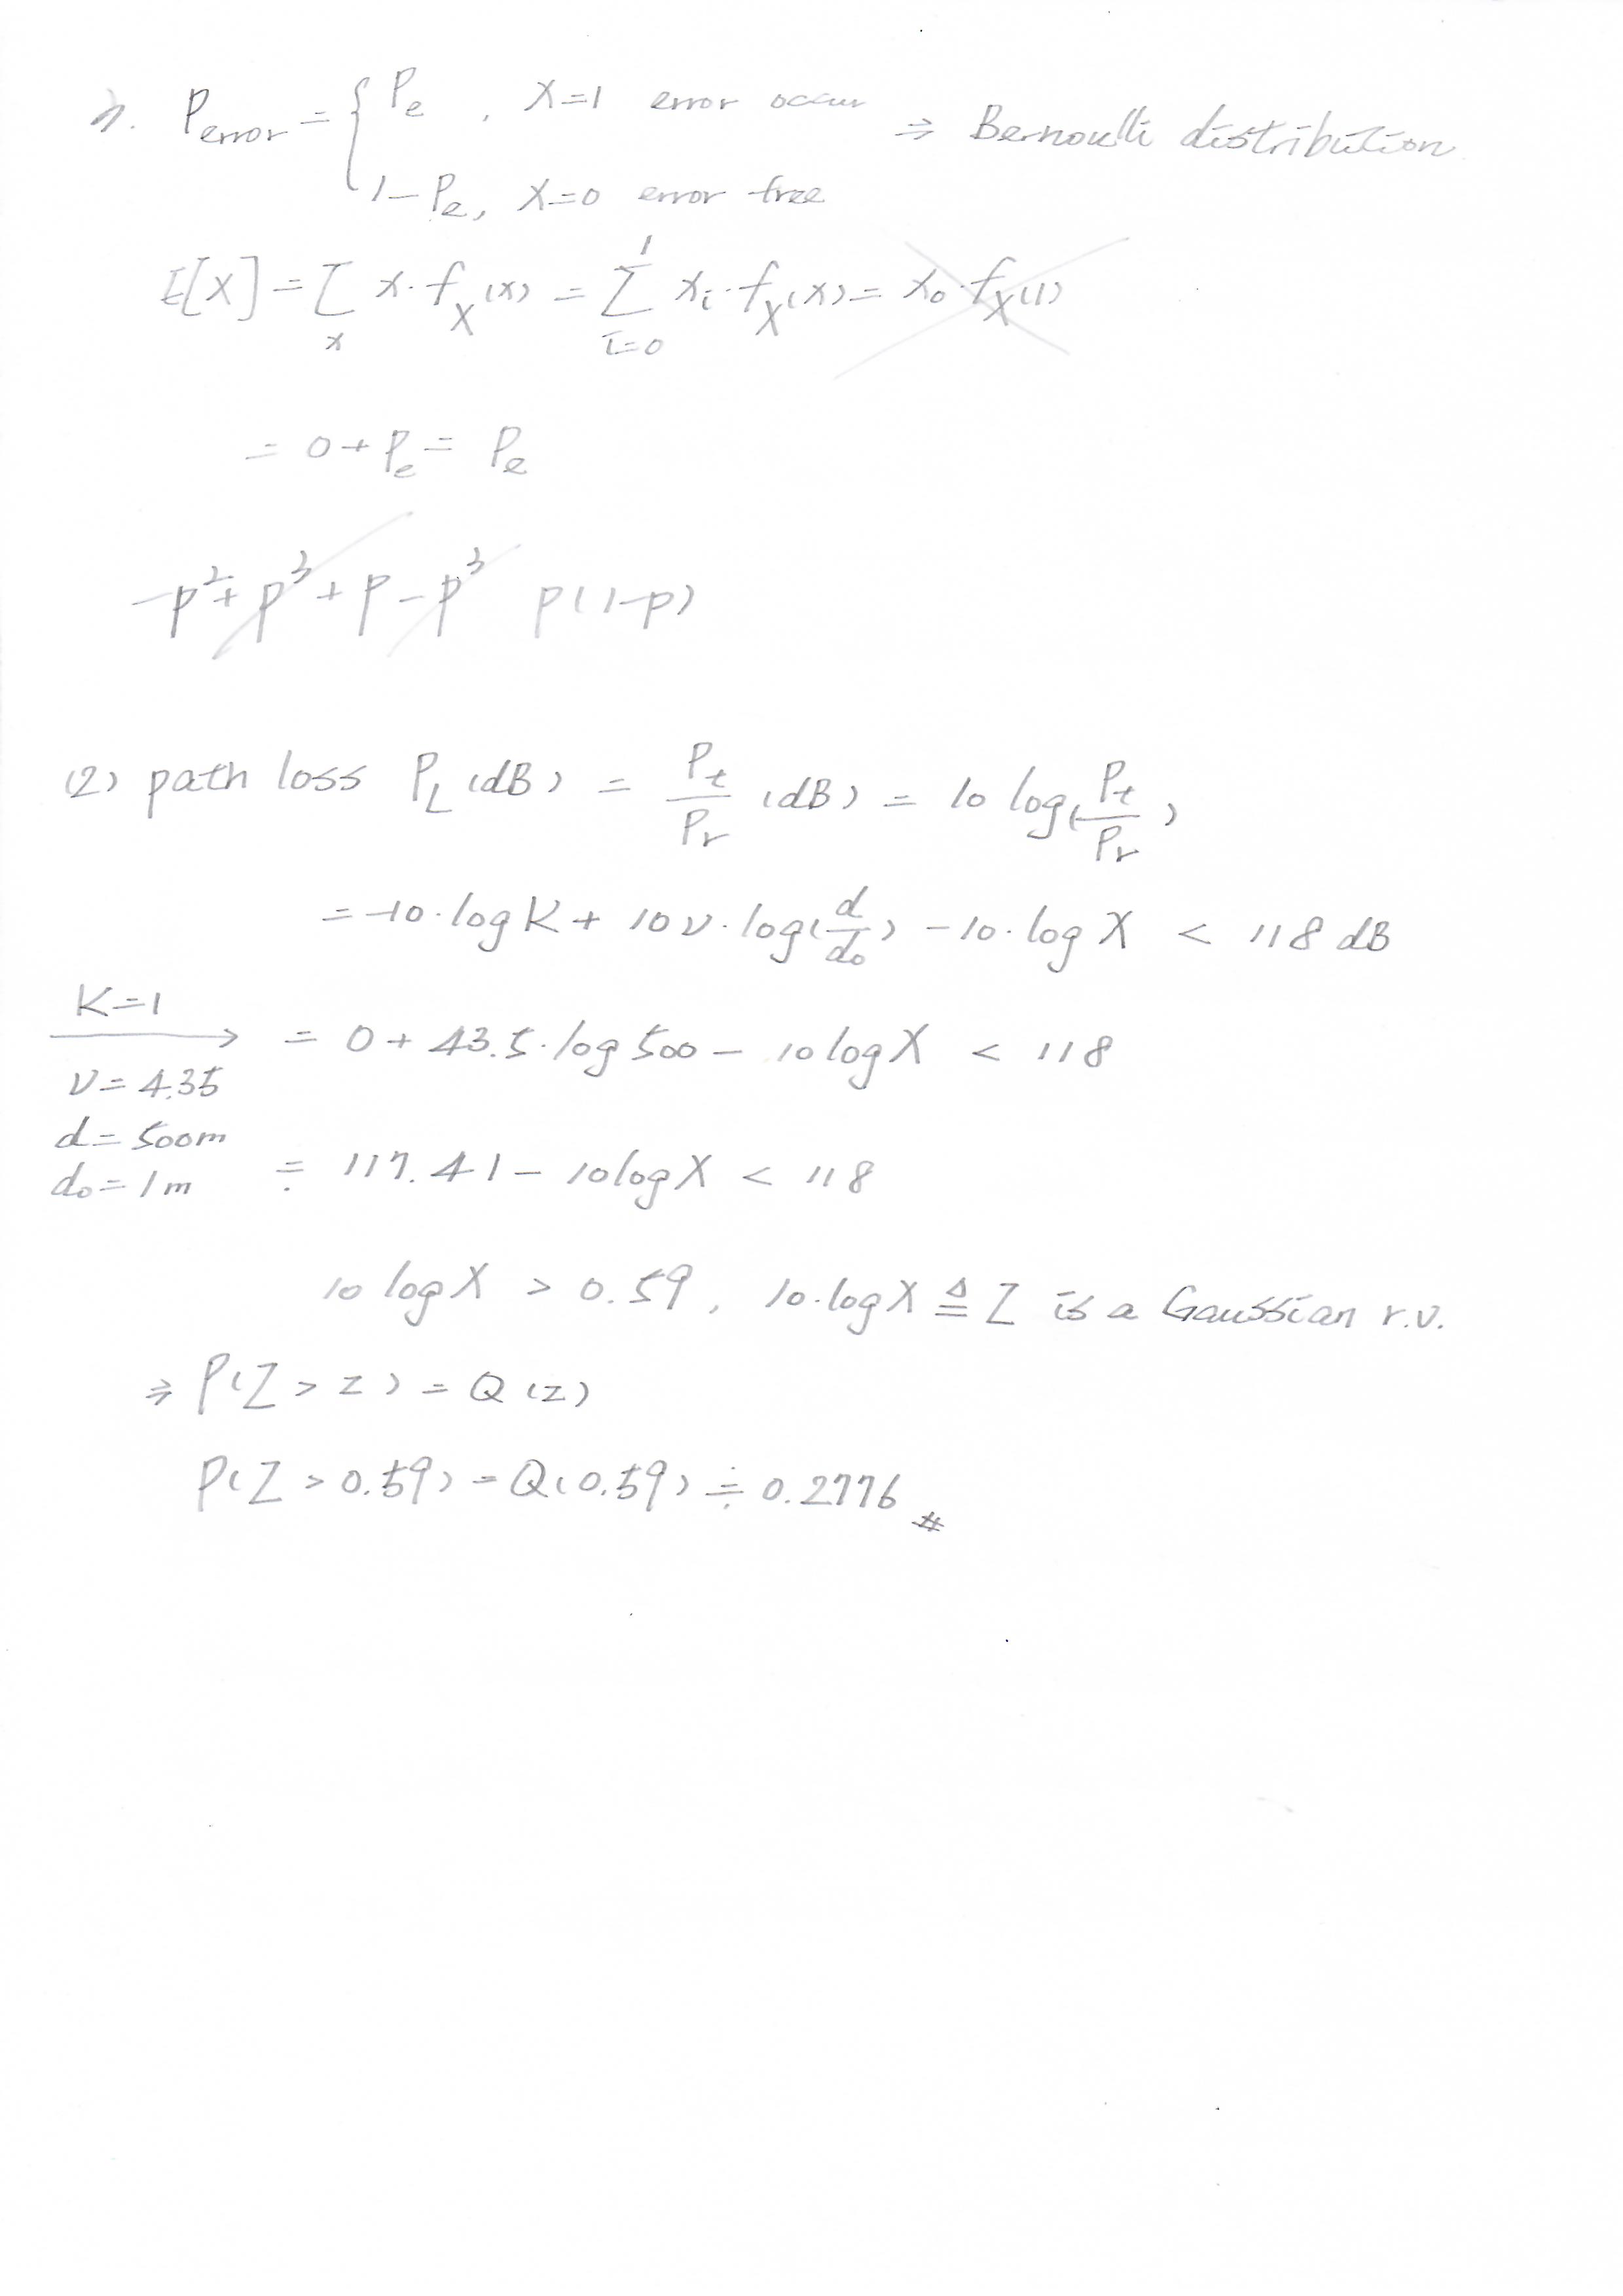 1. P_error = { P_e , X=1 error occur ⇒ Bernoulli distribution
1-P_e, X=0 error free
E[X] = Σ_x x·f_X(x) = Σ_{i=0}^{1} x_i·f_X(x) = x_0·f_X(1)
= 0 + P_e = P_e
-p^2 + p^3 + p - p^3 p(1-p)
(2) path loss P_L (dB) = P_t/P_r (dB) = 10 log(P_t/P_r)
= -10·log K + 10ν·log(d/d_0) - 10·log X < 118 dB
K=1
ν=4.35
d=500m
d_0=1m
= 0 + 43.5·log 500 - 10 log X < 118
≑ 117.41 - 10 log X < 118
10 log X > 0.59, 10·log X ≜ Z is a Gaussian r.v.
⇒ P(Z > z) = Q(z)
P(Z > 0.59) = Q(0.59) ≑ 0.2776 #